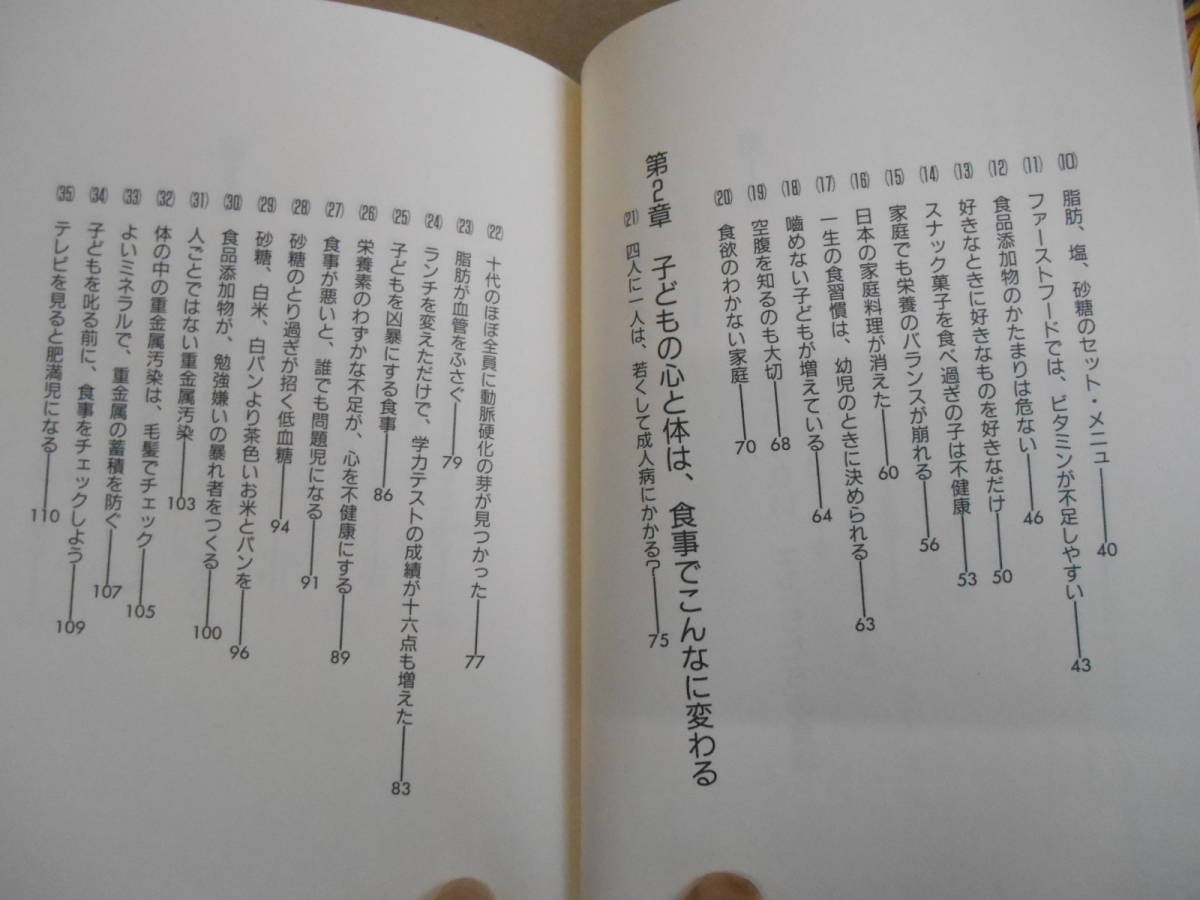 (10) 脂肪、塩、砂糖のセット・メニュー――40
(11) ファーストフードでは、ビタミンが不足しやすい――43
(12) 食品添加物のかたまりは危ない――46
(13) 好きなときに好きなものを好きなだけ――50
(14) スナック菓子を食べ過ぎの子は不健康――53
(15) 家庭でも栄養のバランスが崩れる――56
(16) 日本の家庭料理が消えた――60
(17) 一生の食習慣は、幼児のときに決められる――63
(18) 嚙めない子どもが増えている――64
(19) 空腹を知るのも大切――68
(20) 食欲のわかない家庭――70
第2章 子どもの心と体は、食事でこんなに変わる
(21) 四人に一人は、若くして成人病にかかる?――75
(22) 十代のほぼ全員に動脈硬化の芽が見つかった――77
(23) 脂肪が血管をふさぐ――79
(24) ランチを変えただけで、学力テストの成績が十六点も増えた――83
(25) 子どもを凶暴にする食事――86
(26) 栄養素のわずかな不足が、心を不健康にする――89
(27) 食事が悪いと、誰でも問題児になる――91
(28) 砂糖のとり過ぎが招く低血糖――94
(29) 砂糖、白米、白パンより茶色いお米とパンを――96
(30) 食品添加物が、勉強嫌いの暴れ者をつくる――100
(31) 人ごとではない重金属汚染――103
(32) 体の中の重金属汚染は、毛髪でチェック――105
(33) よいミネラルで、重金属の蓄積を防ぐ――107
(34) 子どもを叱る前に、食事をチェックしよう――109
(35) テレビを見ると肥満児になる――110